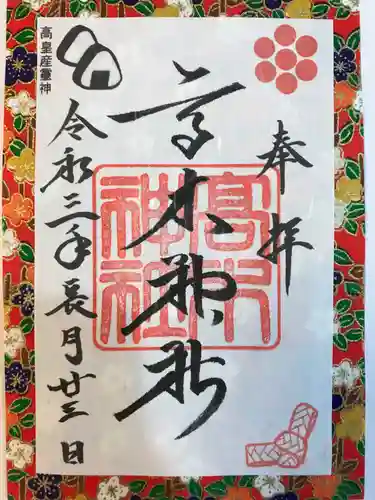 奉拝
高木神社
高木神社
令和三年長月廿三日
高皇産靈神